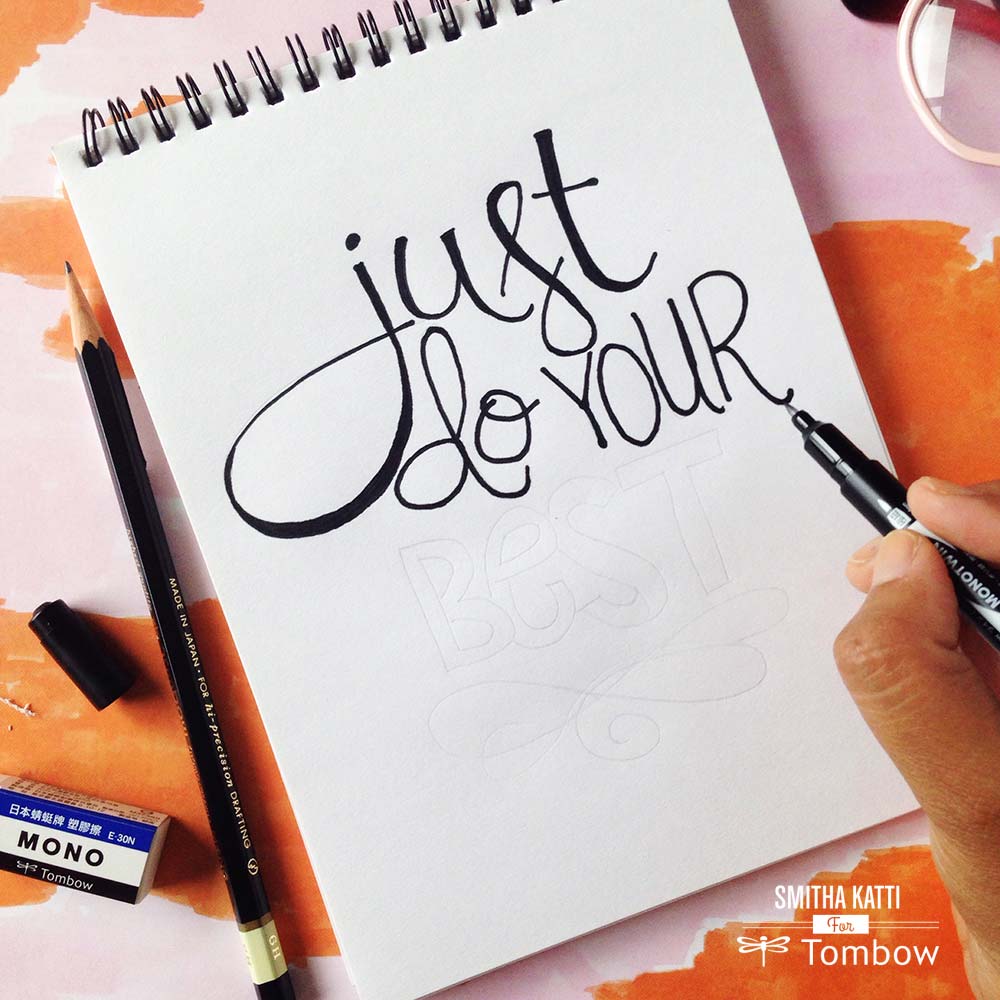 just
do YOUR
BeST
MONOTWIN
MADE IN JAPAN • FOR hi-precision DRAFTING
6H
日本蜻蜓牌 塑膠擦 E-30N
MONO
Tombow
SMITHA KATTI
For
Tombow